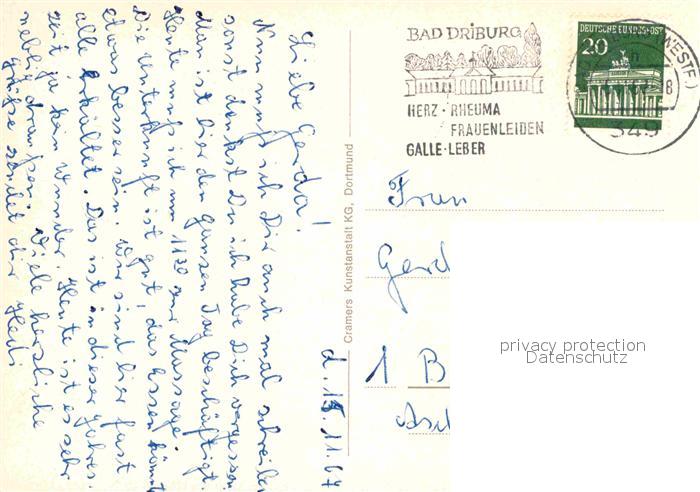 d. 15. 11. 67
Liebe Gerda!
Nun muß ich Dir auch mal schreiben
sonst denkst Du ich habe Dich vergessen.
Man ist hier den ganzen Tag beschäftigt.
Heute muß ich um 11 20 zur Massage.
Die Unterkunft ist gut, das Essen könnte
etwas besser sein. Wir sind hier fast
alle erkältet. Das ist in dieser Jahres-
zeit ja kein Wunder. Heute ist es sehr
neblig draußen. Viele herzliche
Grüße sendet dir Hedi
Cramers Kunstanstalt KG, Dortmund
BAD DRIBURG
HERZ · RHEUMA
FRAUENLEIDEN
GALLE · LEBER
DEUTSCHE BUNDESPOST
20
(WESTF.)
349
Frau
Gerd
1 B
privacy protection
Datenschutz